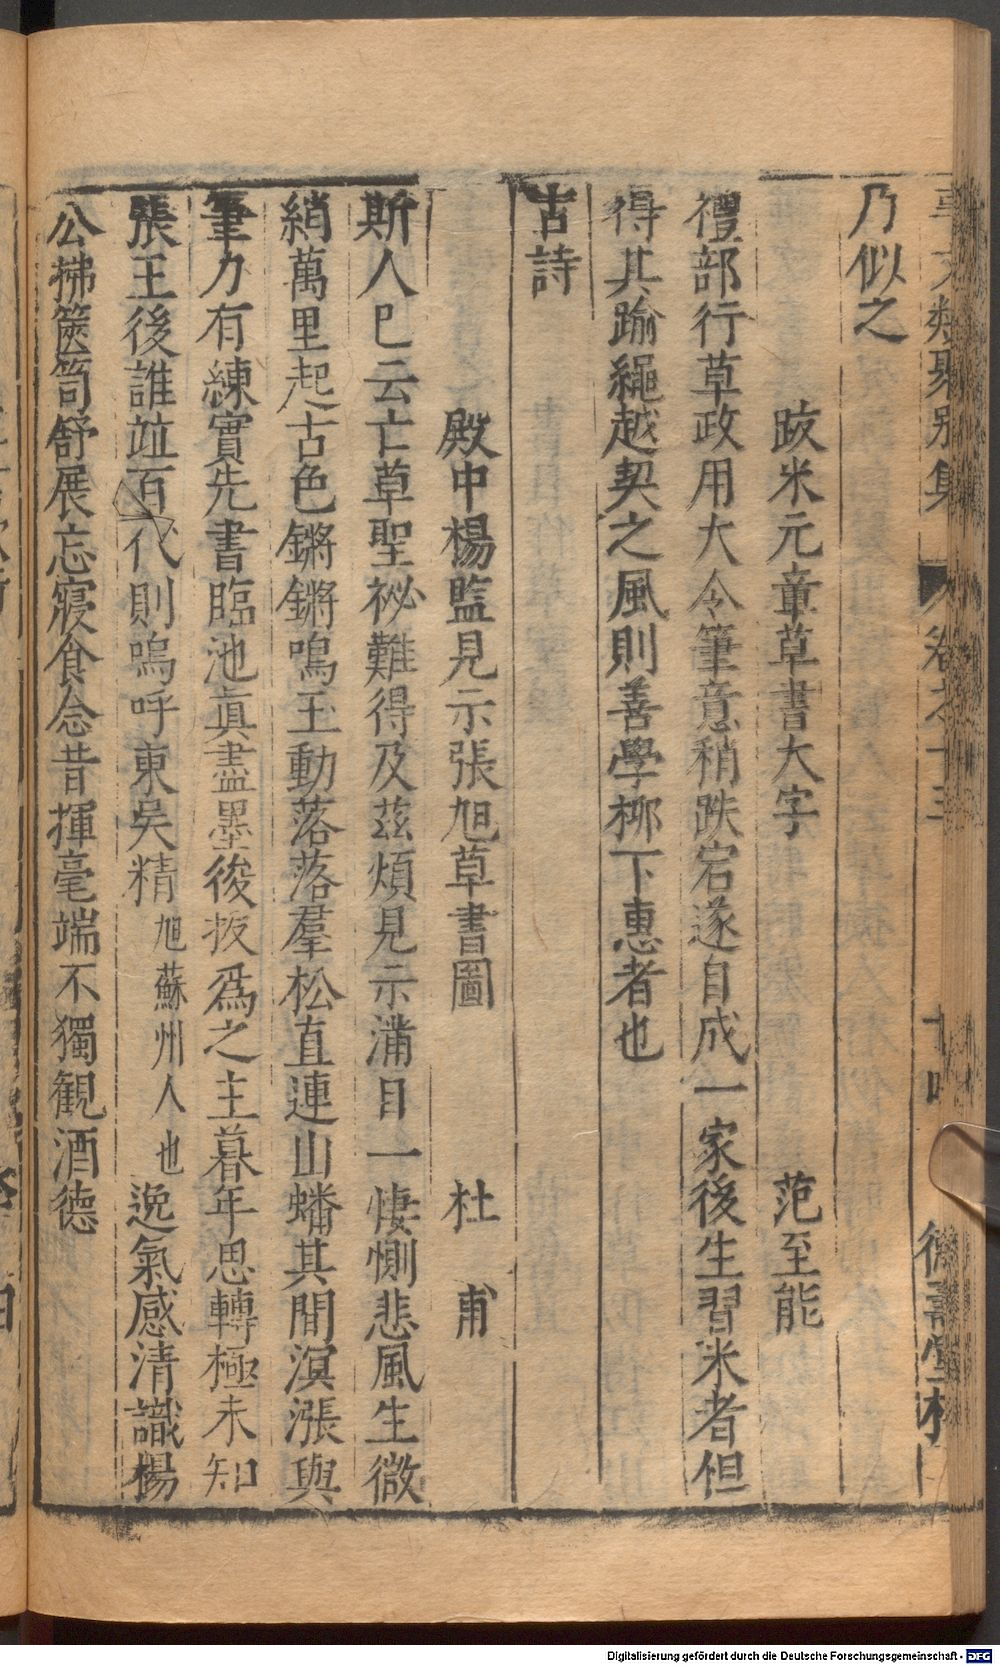 事文類聚別集 卷之十三 十四 德壽堂梓
乃似之
跋米元章草書大字 范至能
禮部行草政用大令筆意稍跌宕遂自成一家後生習米者但
得其踰繩越契之風則善學柳下惠者也
古詩
殿中楊監見示張旭草書圖 杜甫
斯人巳云亡草聖祕難得及茲煩見示滿目一悽惻悲風生微
綃萬里起古色鏘鏘鳴玉動落落羣松直連山蟠其間溟漲與
筆力有練實先書臨池真盡墨後拔爲之主暮年思轉極未知
張王後誰竝百代則嗚呼東吳精旭蘇州人也逸氣感清識楊
公拂篋笥舒展忘寢食念昔揮毫端不獨観酒德
Digitalisierung gefördert durch die Deutsche Forschungsgemeinschaft - DFG